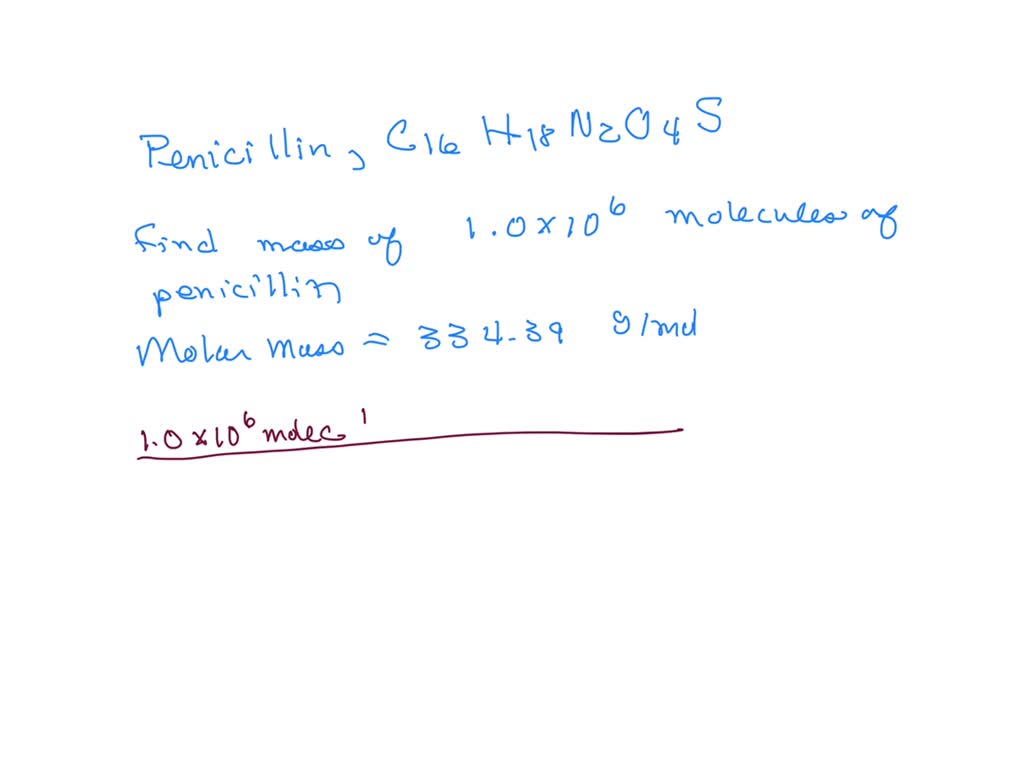 Penicillin, C16 H18 N2O4 S
Find mass of 1.0×10⁶ molecules of
penicillin
Molar mass = 334.39 g/mol
1.0×10⁶ molec 1